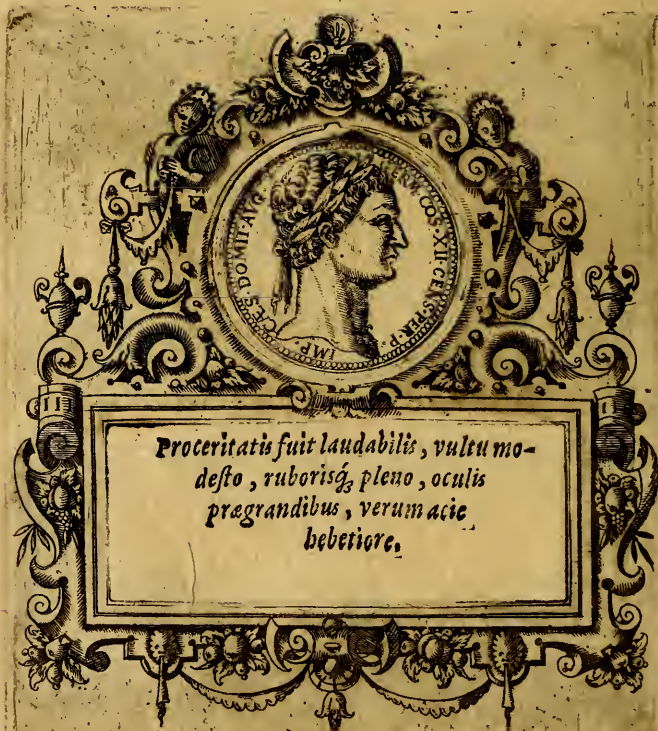 IMP·CÆS·DOMIT·AVG· GERM·COS·XII·CENS·PER·P·P·
Proceritatis fuit laudabilis, vultu mo-
desto, ruborisq́ꝫ pleno, oculis
prægrandibus, verum acie
hebetiore.